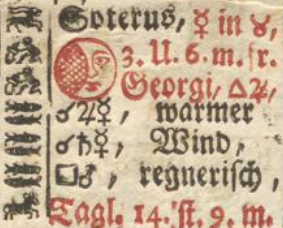 Soterus, ☿ in ♉,
3. U. 6. m. fr.
Georgi, △♃,
☌♃☿, warmer
☌♄☿, Wind,
□♂, regneriſch,
Tagl. 14. ſt. 9. m.